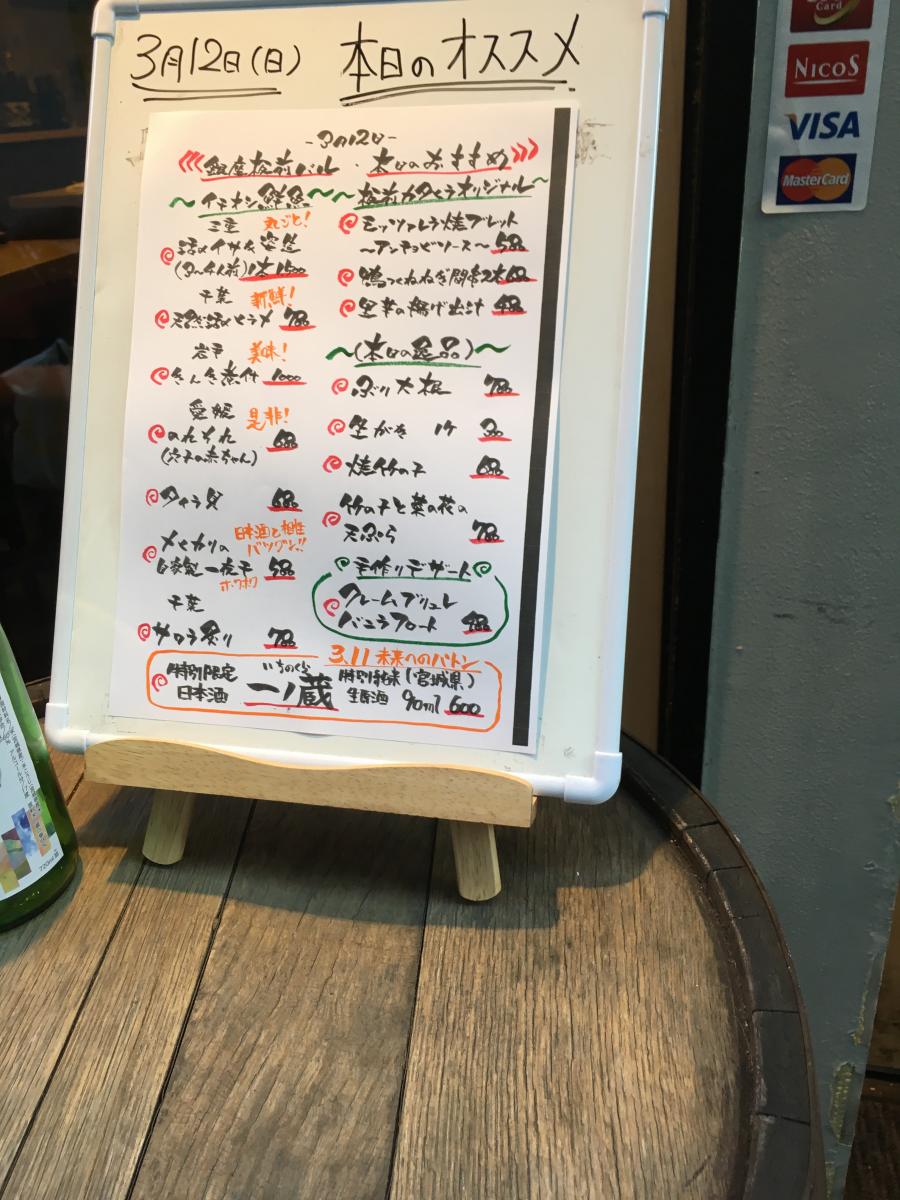 3月12日(日) 本日のオススメ
-3月12日-
銀座板前バル・本日のおすすめ
〜イチオシ鮮魚〜
三重 丸ごと!
活〆イサキ姿造
(3〜4人前)1本1500
千葉 新鮮!
天然活〆ヒラメ 780
岩手 美味!
きんき煮付 1000
愛媛 是非!
のれそれ 680
(穴子の赤ちゃん)
タイラ貝 680
メヒカリの 日本酒と相性バツグン!!
自家製一夜干 580
ホクホク
千葉
サワラ炙り 780
〜板前カタくラオリジナル〜
モッツァレラ焼ブレット
〜アンチョビソース〜 580
鴨つくねねぎ間串2本 680
里芋の揚げ出汁 480
〜(本日の逸品)〜
ぶり大根 780
生がき 1ケ 380
焼竹の子 680
竹の子と菜の花の
天ぷら 780
手作りデザート
クレームブリュレ
バニラフロート 480
3.11 未来へのバトン
特別限定
日本酒
いちのくら
一ノ蔵
特別純米(宮城県)
生原酒 90ml 600
Card
NICOS
VISA
MasterCard
720ml